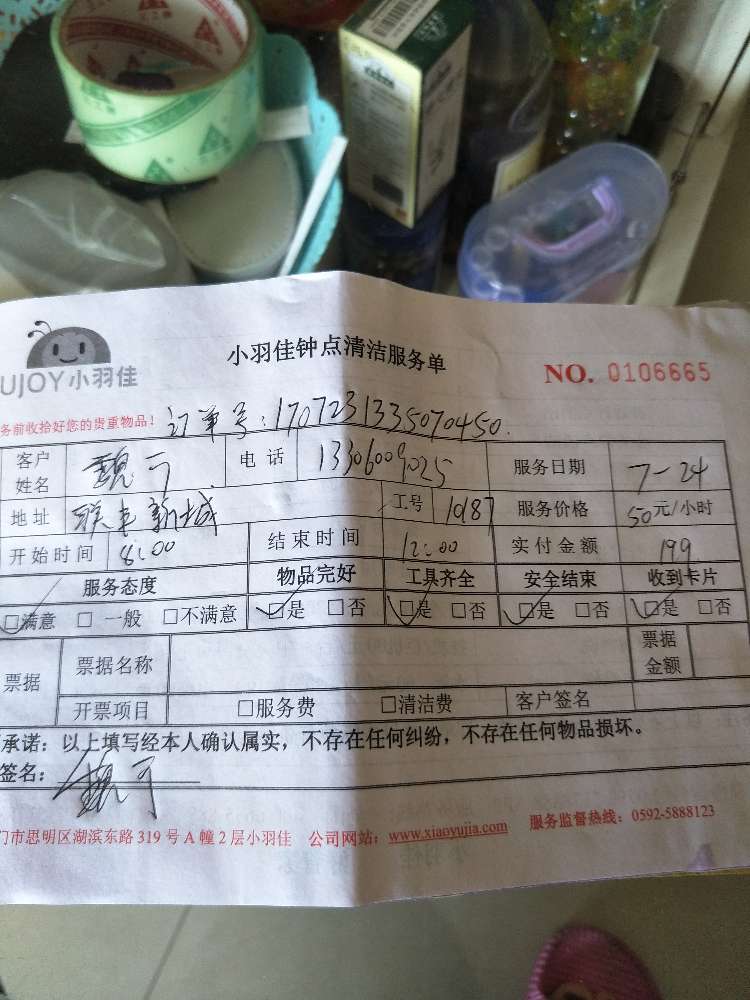 小羽佳钟点清洁服务单
UJOY小羽佳
NO. 0106665
务前收拾好您的贵重物品！ 订单号：1707231335070450.
客户姓名 魏可 电话 13306009025 服务日期 7-24
地址 联丰新城 工号 10187 服务价格 50元/小时
开始时间 8:00 结束时间 12:00 实付金额 199
服务态度 物品完好 工具齐全 安全结束 收到卡片
☑满意 □ 一般 □不满意 ☑是 □否 ☑是 □否 ☑是 □否 ☑是 □否
票据 票据名称 票据金额
开票项目 □服务费 □清洁费 客户签名
承诺：以上填写经本人确认属实，不存在任何纠纷，不存在任何物品损坏。
签名：魏可
门市思明区湖滨东路 319 号 A 幢 2 层小羽佳 公司网站：www.xiaoyujia.com 服务监督热线：0592-5888123